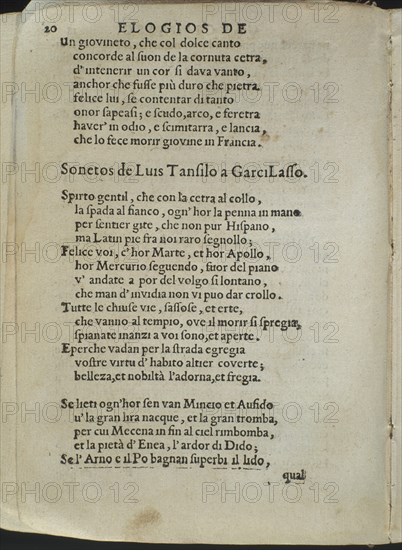 20 ELOGIOS DE
Un giovineto, che col dolce canto
concorde al suon de la cornuta cetra,
d'intenerir un cor si dava vanto,
anchor che fusse più duro che pietra.
felice lui, se contentar di tanto
onor sapeasi; e scudo, arco, e feretra
haver'in odio, e scimitarra, e lancia,
che lo fece morir giovine in Francia.
Sonetos de Luis Tansilo a GarciLasso.
Spirto gentil, che con la cetra al collo,
la spada al fianco, ogn'hor la penna in mano
per sentier gite, che non pur Hispano,
ma Latin pie fra noi raro segnollo;
Felice voi, c'hor Marte, et hor Apollo,
hor Mercurio seguendo, fuor del piano
v'andate a por del volgo si lontano,
che man d'invidia non vi puo dar crollo.
Tutte le chiuse vie, sassose, et erte,
che vanno al tempio, ove il morir si spregia,
spianate inanzi a voi sono, et aperte.
Eperche vadan per la strada egregia
vostre virtu d'habito altier coverte;
belleza, et nobiltà l'adorna, et fregia.
Se lieti ogn'hor sen van Mincio et Aufido
u' la gran lira nacque, et la gran tromba,
per cui Mecena in fin al ciel rimbomba,
et la pietà d'Enea, l'ardor di Dido;
Se l'Arno e il Po bagnan superbi il lido,
qual